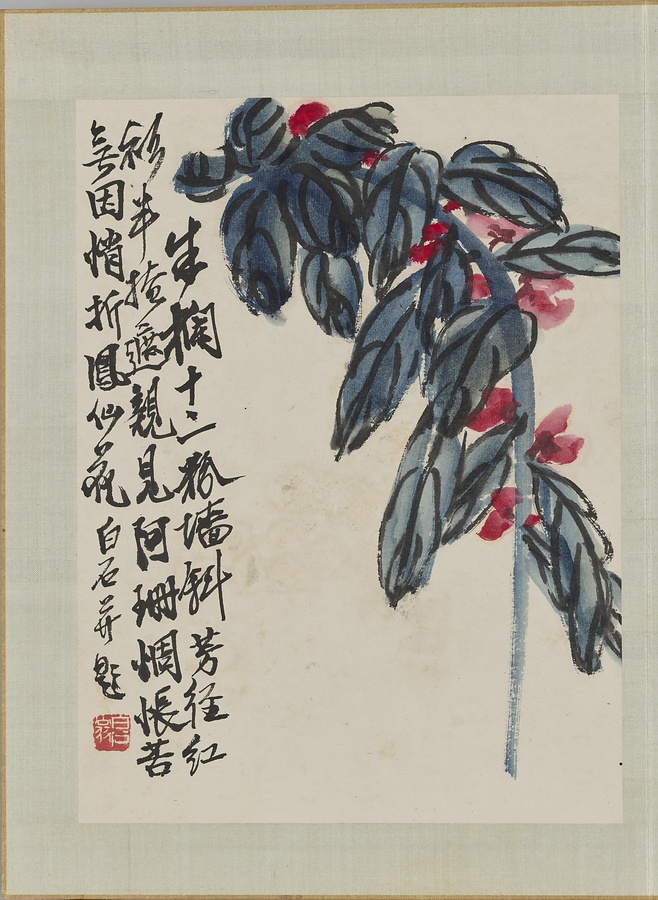 朱欄十二粉墻斜芳徑紅
衫半掩遮親見阿珊惆悵苦
無因悄折鳳仙花白石并題
白石翁